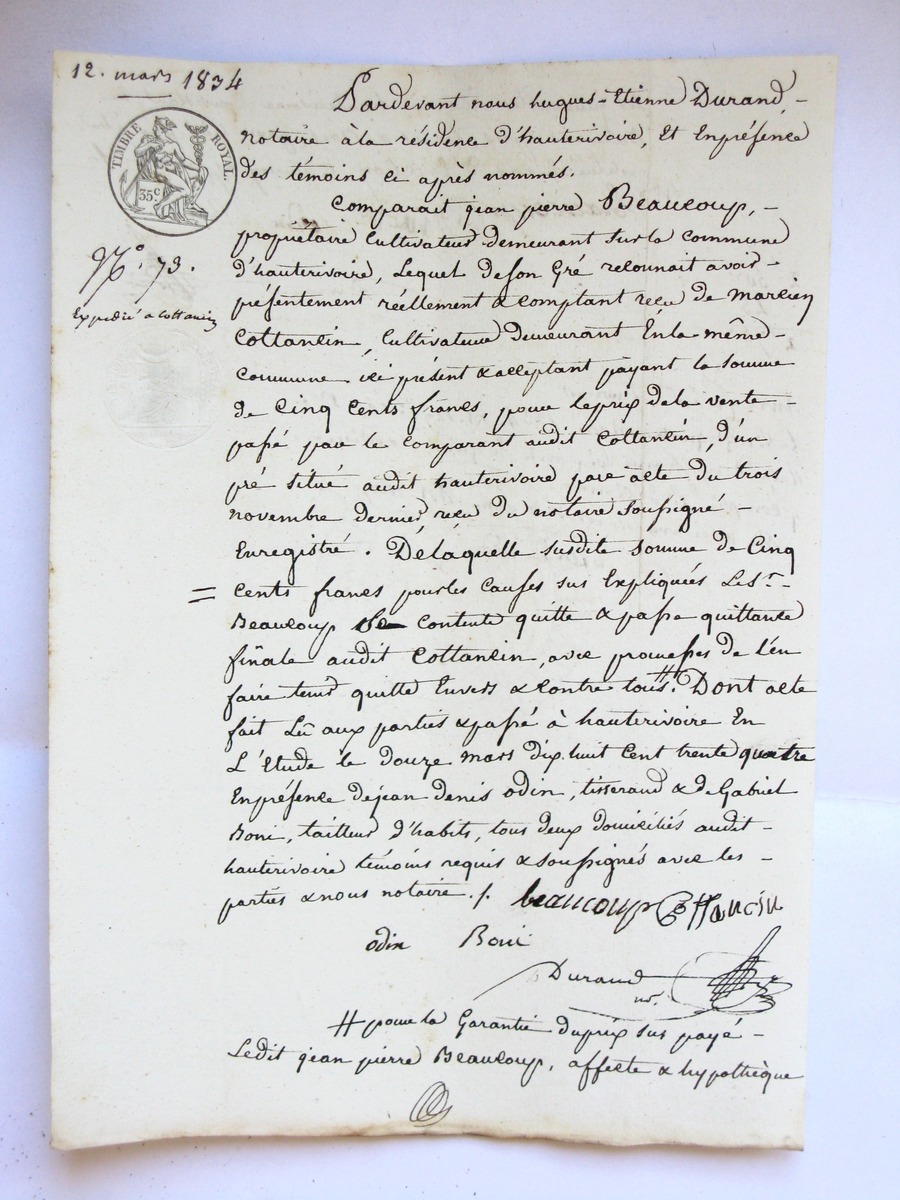 12. mars 1834
TIMBRE ROYAL.
35c
N°. 73.
Expédié a Cottancin
Pardevant nous hugues-Etienne Durand, -
notaire à la résidence d'hauterivoire, Et Enprésence
des témoins ci après nommés.
Comparait jean pierre Beaucoup, -
propriétaire Cultivateur demeurant sur la commune
d'hauterivoire, Lequel deson Gré reconnait avoir -
présentement réellement & comptant reçu de marcien
Cottancin, Cultivateur demeurant Enla même -
Commune ici présent & acceptant payant la somme
de Cinq Cents francs, pour leprix dela vente -
passé par le Comparant audit Cottancin, d'un
pré situé audit hauterivoire par acte du trois
novembre dernier, reçu du notaire soussigné -
Enregistré. Delaquelle susdite somme de Cinq
= Cents francs pourles causes sus Expliquées Le Sr -
Beaucoup se contente quitte & passe quittance
finale audit Cottancin, avec promesses de l'en
faire tenir quitte Envers & contre tous. # Dont acte
fait Lû aux parties & passé à hauterivoire En
L'étude le douze mars dix huit Cent trente quatre
Enprésence dejean denis odin, tisserand & de Gabriel
Boni, tailleur d'habits, tous deux domiciliés audit -
hauterivoire témoins requis & soussignés avec les -
parties & nous notaire. /.
beaucoup Cottancin
odin Boni
Durand
nre.
# pour la Garantie duprix sus payé -
Ledit jean pierre Beaucoup, affecte & hypothèque